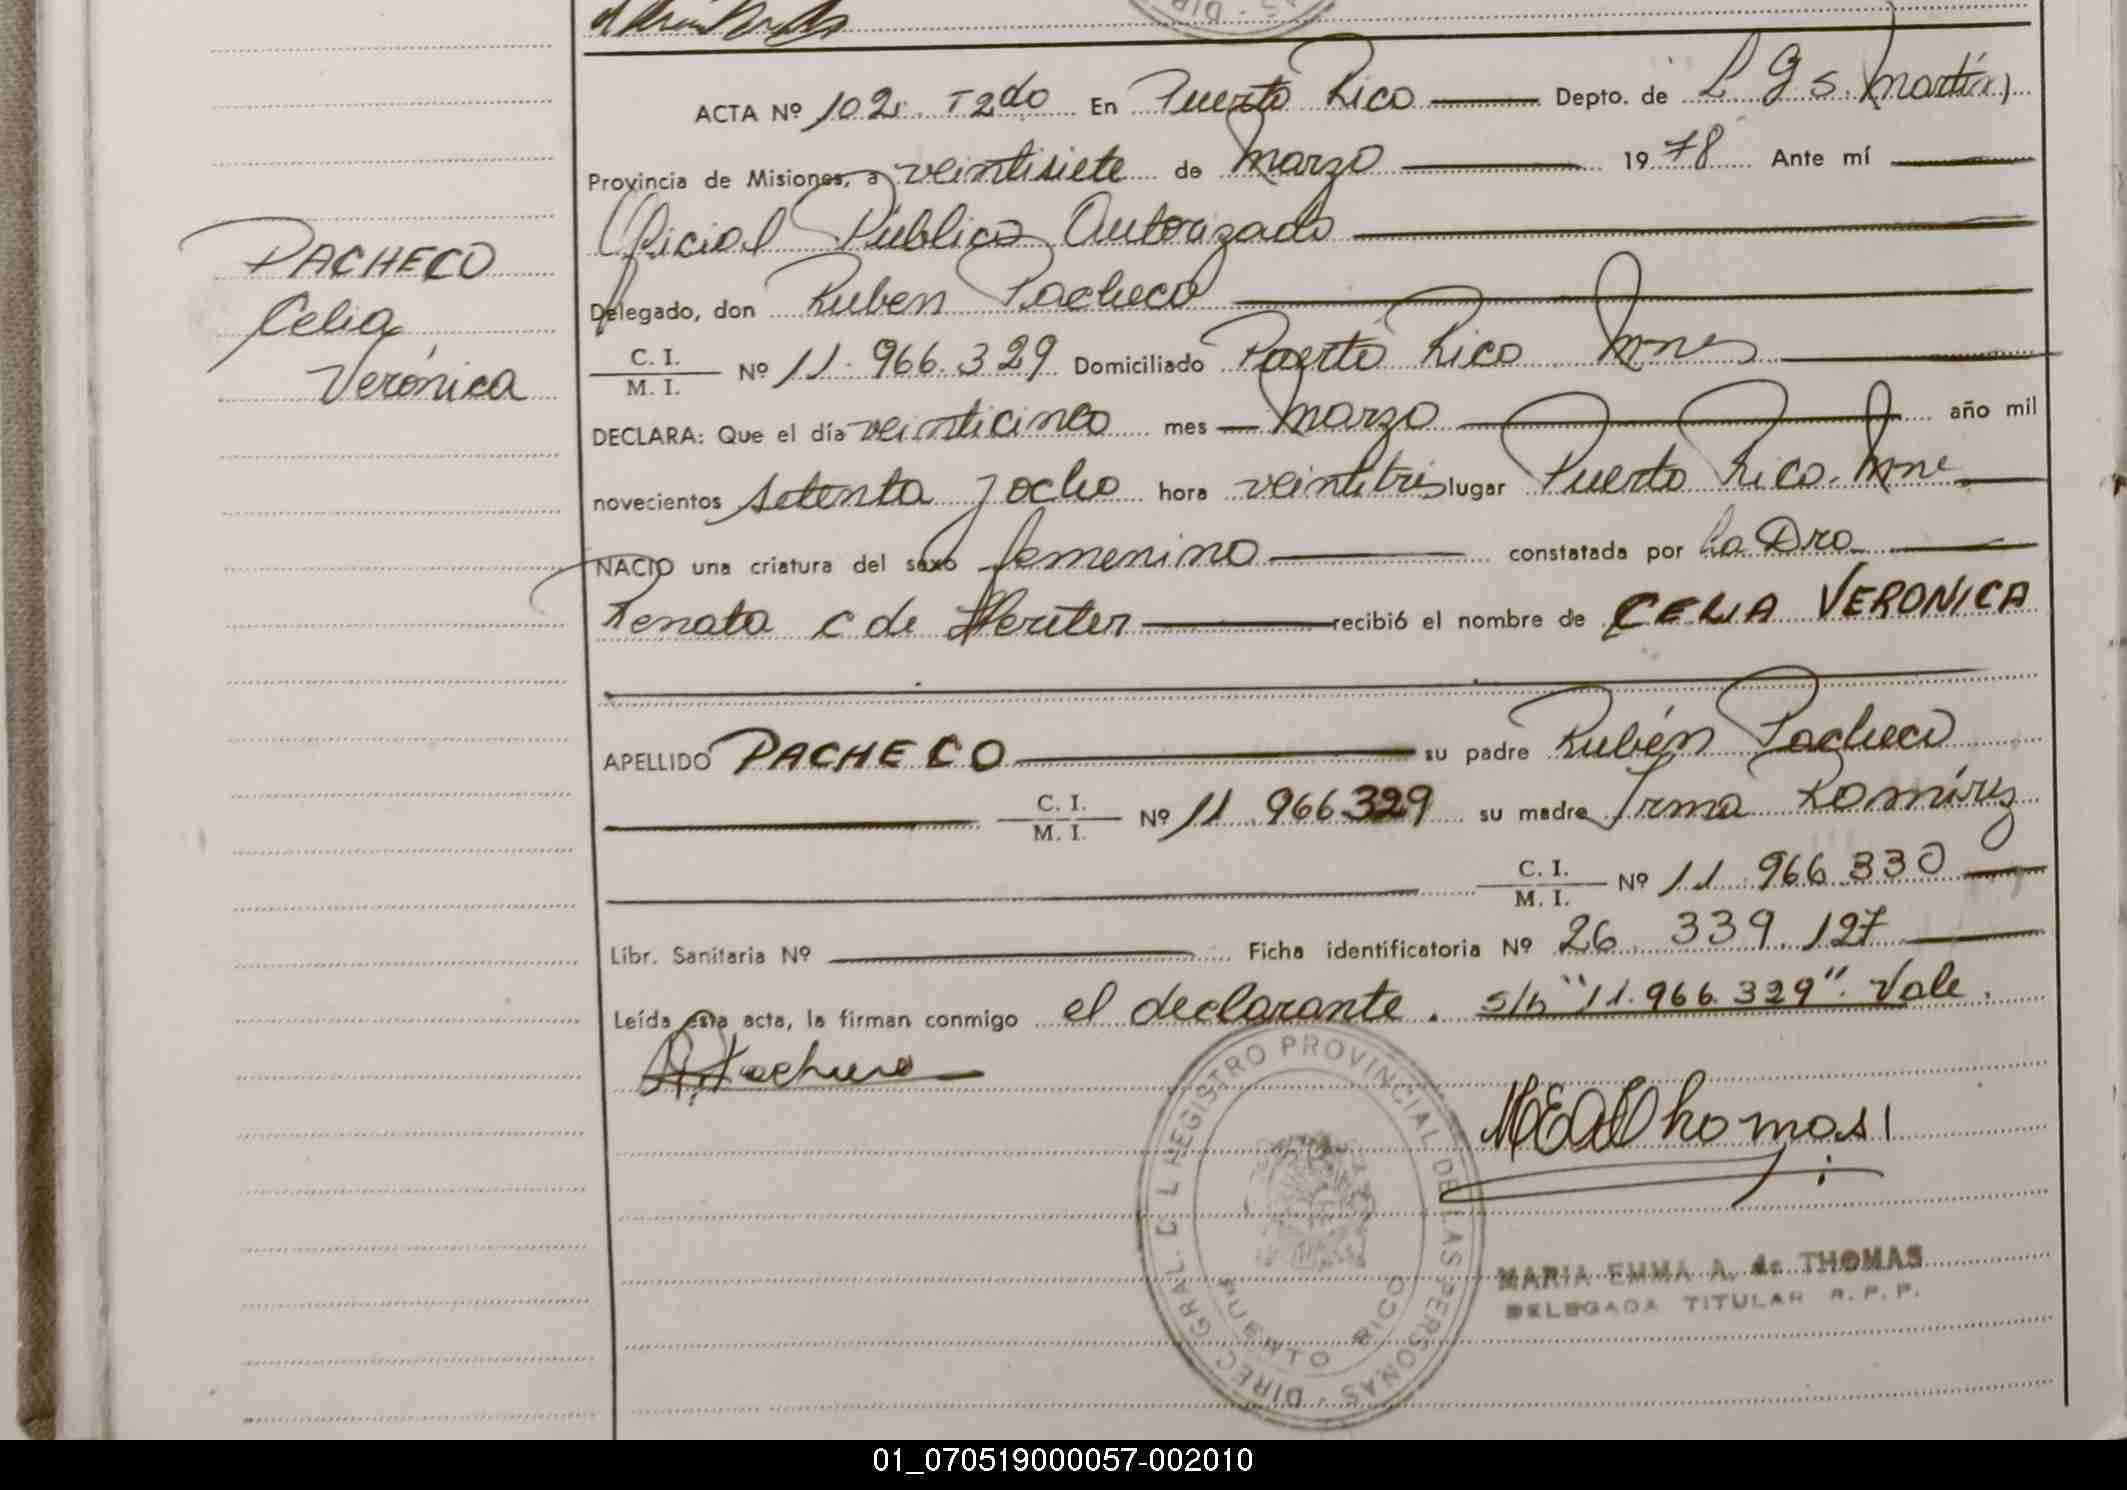 ACTA Nº 102. T 2do En Puerto Rico Depto. de L G S. Martín
Provincia de Misiones, a veintisiete de Marzo 1978 Ante mí
Oficial Público Autorizado
PACHECO
Celia
Verónica
Delegado, don Ruben Pacheco
C. I.
M. I.
Nº 11.966.329 Domiciliado Puerto Rico Mnes
DECLARA: Que el día veinticinco mes Marzo año mil
novecientos setenta y ocho hora veintitrés lugar Puerto Rico. Mne
NACIO una criatura del sexo femenino constatada por La Dra
Renata C de recibió el nombre de CELIA VERONICA
APELLIDO PACHECO su padre Rubén Pacheco
C. I.
M. I.
Nº 11.966329 su madre Irma Ramírez
C. I.
M. I.
Nº 11.966.330
Libr. Sanitaria Nº Ficha identificatoria Nº 26.339.127
Leída esta acta, la firman conmigo el declarante. s/b "11.966.329". Vale.
DIREC. GRAL. DEL REGISTRO PROVINCIAL DE LAS PERSONAS
PUERTO RICO
MARIA EMMA A. de THOMAS
DELEGADA TITULAR R. P. P.
01_070519000057-002010